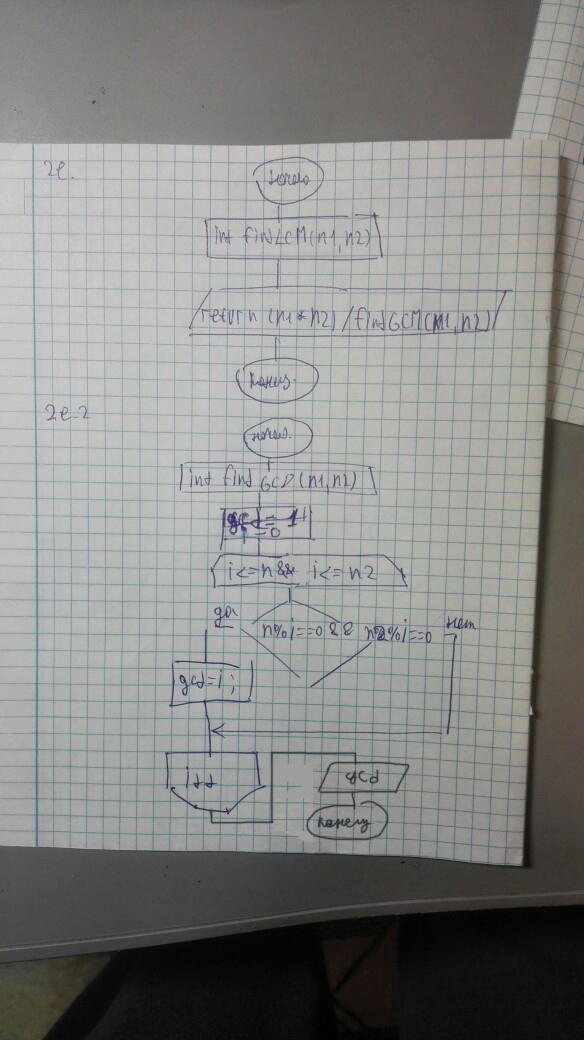 2е.
начало
int findLCM(n1,n2)
return (n1*n2) / findGCM(n1,n2)
конец.
2е-2
начало.
int find GCD (n1,n2)
i<=n&& i<=n2
да
нет
n%i==0 && n2%i==0
gcd=i;
i++
gcd
конец